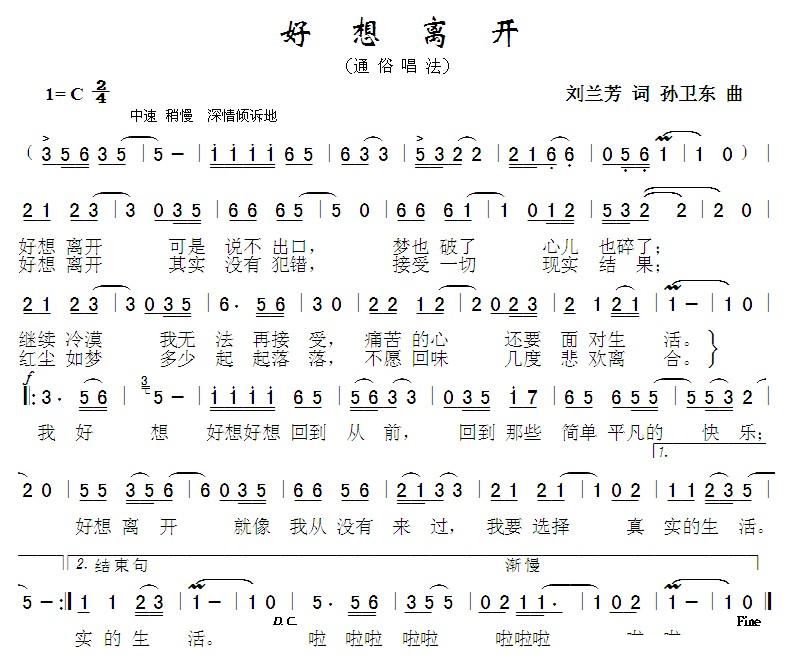 好 想 离 开
(通 俗 唱 法)
1= C 2/4
刘兰芳 词 孙卫东 曲
中速 稍慢 深情倾诉地
( 3 5 6 3 5 | 5 – | 1 1 1 1 6 5 | 6 3 3 | 5 3 2 2 | 2 1 6 6 | 0 5 6 1 | 1 0 ) |
2 1 2 3 | 3 0 3 5 | 6 6 6 5 | 5 0 | 6 6 6 1 | 1 0 1 2 | 5 3 2 2 | 2 0 |
好想 离开 可是 说不 出口, 梦也 破了 心儿 也碎了;
好想 离开 其实 没有 犯错, 接受 一切 现实 结 果;
2 1 2 3 | 3 0 3 5 | 6 · 5 6 | 3 0 | 2 2 1 2 | 2 0 2 3 | 2 1 2 1 | 1 – | 1 0 |
继续 冷漠 我无 法 再接 受, 痛苦 的心 还要 面 对生 活。
红尘 如梦 多少 起 起落 落, 不愿 回味 几度 悲 欢离 合。
f
‖: 3 · 5 6 | 3 5 – | 1 1 1 1 6 5 | 5 6 3 3 | 0 3 5 1 7 | 6 5 6 5 5 | 5 5 3 2 |
我 好 想 好想好想 回到 从 前, 回到 那些 简单 平凡的 快 乐;
1.
2 0 | 5 5 3 5 6 | 6 0 3 5 | 6 6 5 6 | 2 1 3 3 | 2 1 2 1 | 1 0 2 | 1 1 2 3 5 |
好想 离 开 就像 我从 没有 来 过, 我要 选择 真 实的生 活。
2. 结束句 渐慢
5 – :‖ 1 1 2 3 | 1 – | 1 0 | 5 · 5 6 | 3 5 5 5 | 0 2 1 1 · | 1 0 2 | 1 – | 1 0 ‖
D.C. Fine
实 的 生 活。 啦 啦啦 啦啦 啦啦啦 啦 啦。